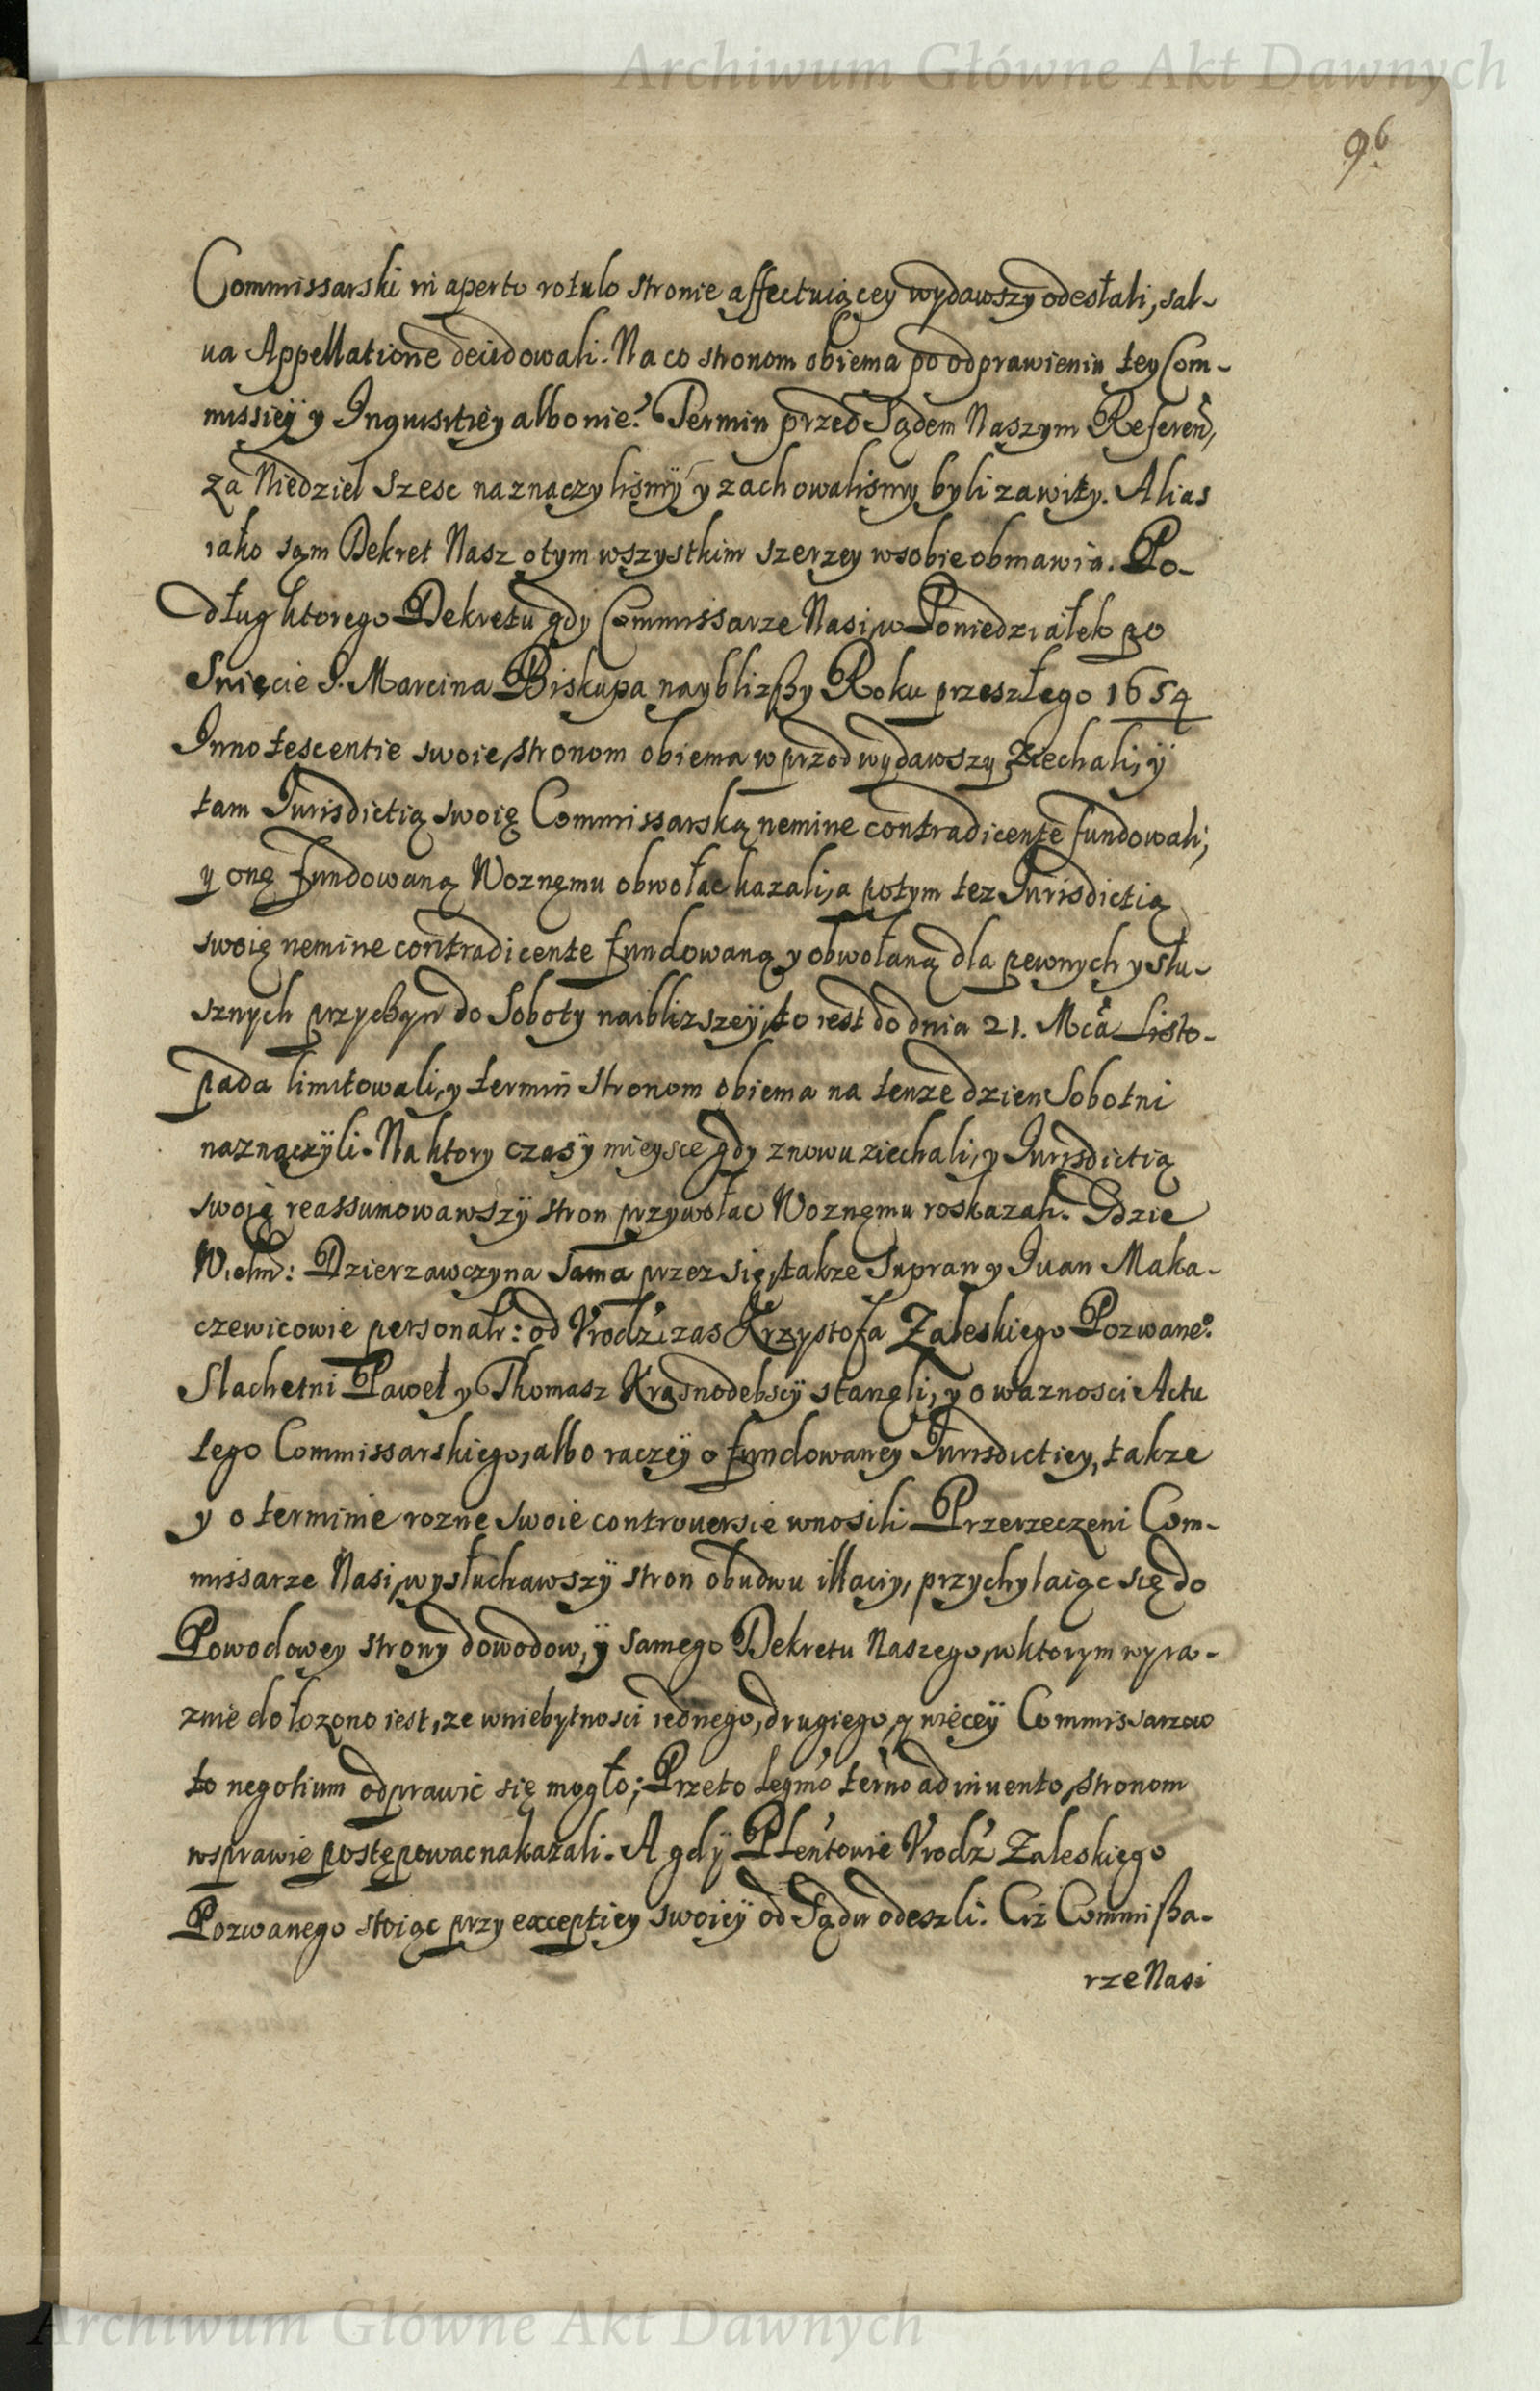 Archiwum Główne Akt Dawnych
96
Commissarski in aperto rotulo stronie affectuiącey wydawszy odesłali, sal-
ua Appellatione deiudowali. Na co stronom obiema po odprawieniu tey Com-
missiey y Inquisitiey albo nie? Termin przed Sądem Naszym Referen̄,
za Niedziel szesc naznaczylismÿ y zachowalismy byli zawity. Alias
iako sąm Dekret Nasz o tym wszystkim szerzey w sobie obmawia. Po-
dług ktorego Dekretu gdy Commissarze Nasi, w Poniedziałek po
Swięcie S. Marcina Biskupa nayblizßy Roku przeszłego 1654
Innotescentie swoie stronom obiema w przod wydawszy ziechali, ÿ
tam Jurisdictią swoię Commissarską nemine contradicente fundowali,
y onę fundowaną Woznęmu obwołac kazali, a potym tez Jurisdictią
swoię nemine contradicente fundowaną y obwołaną dla pewnych y słu-
sznych przyczyn do Soboty naiblizszeÿ, to iest do dnia 21. Mca Listo-
pada limitowali, y termin stronom obiema na tenze dzien Sobotni
naznączÿli. Na ktory czas ÿ mieysce gdy znowu ziechali, y Jurisdictią
swoię reassumowawszÿ stron przywołac Woznęmu roskazali. Gdzie
Wielm: Dzierzawczyna sama przez się, takze Supran y Iuan Maka-
czewicowie personalr: od Vrodz' zas Krzysztofa Zaleskiego Pozwane°.
Slachetni Paweł y Thomasz Krasnodebscÿ stangli, y o waznosci Actu
tego Commissarskiego, albo raczeÿ o fundowaney Jurisdictiey, takze
y o terminie rozne swoie controuersie wnosili Przerzeczeni Com-
missarze Nasi, wysłuchawszÿ stron obudwu illaciy, przychylaiąc się do
Powodowey strony dowodow, ÿ samego Dekretu Naszego, w ktorym wyra-
znie dołozono iest, ze w niebytnosci iednego, drugiego, y więceÿ Commissarzow
to negotium odprawic się mogło; Przeto legm̄o ter̄no adinuento, stronom
w sprawie postępowac nakazali. A gdÿ Plen'towie Vrodz' Zaleskiego
Pozwanego stoiąc przy exceptiey swoieÿ od Sądu odeszli. Ciz Commißa-
rze Nasi
Archiwum Główne Akt Dawnych